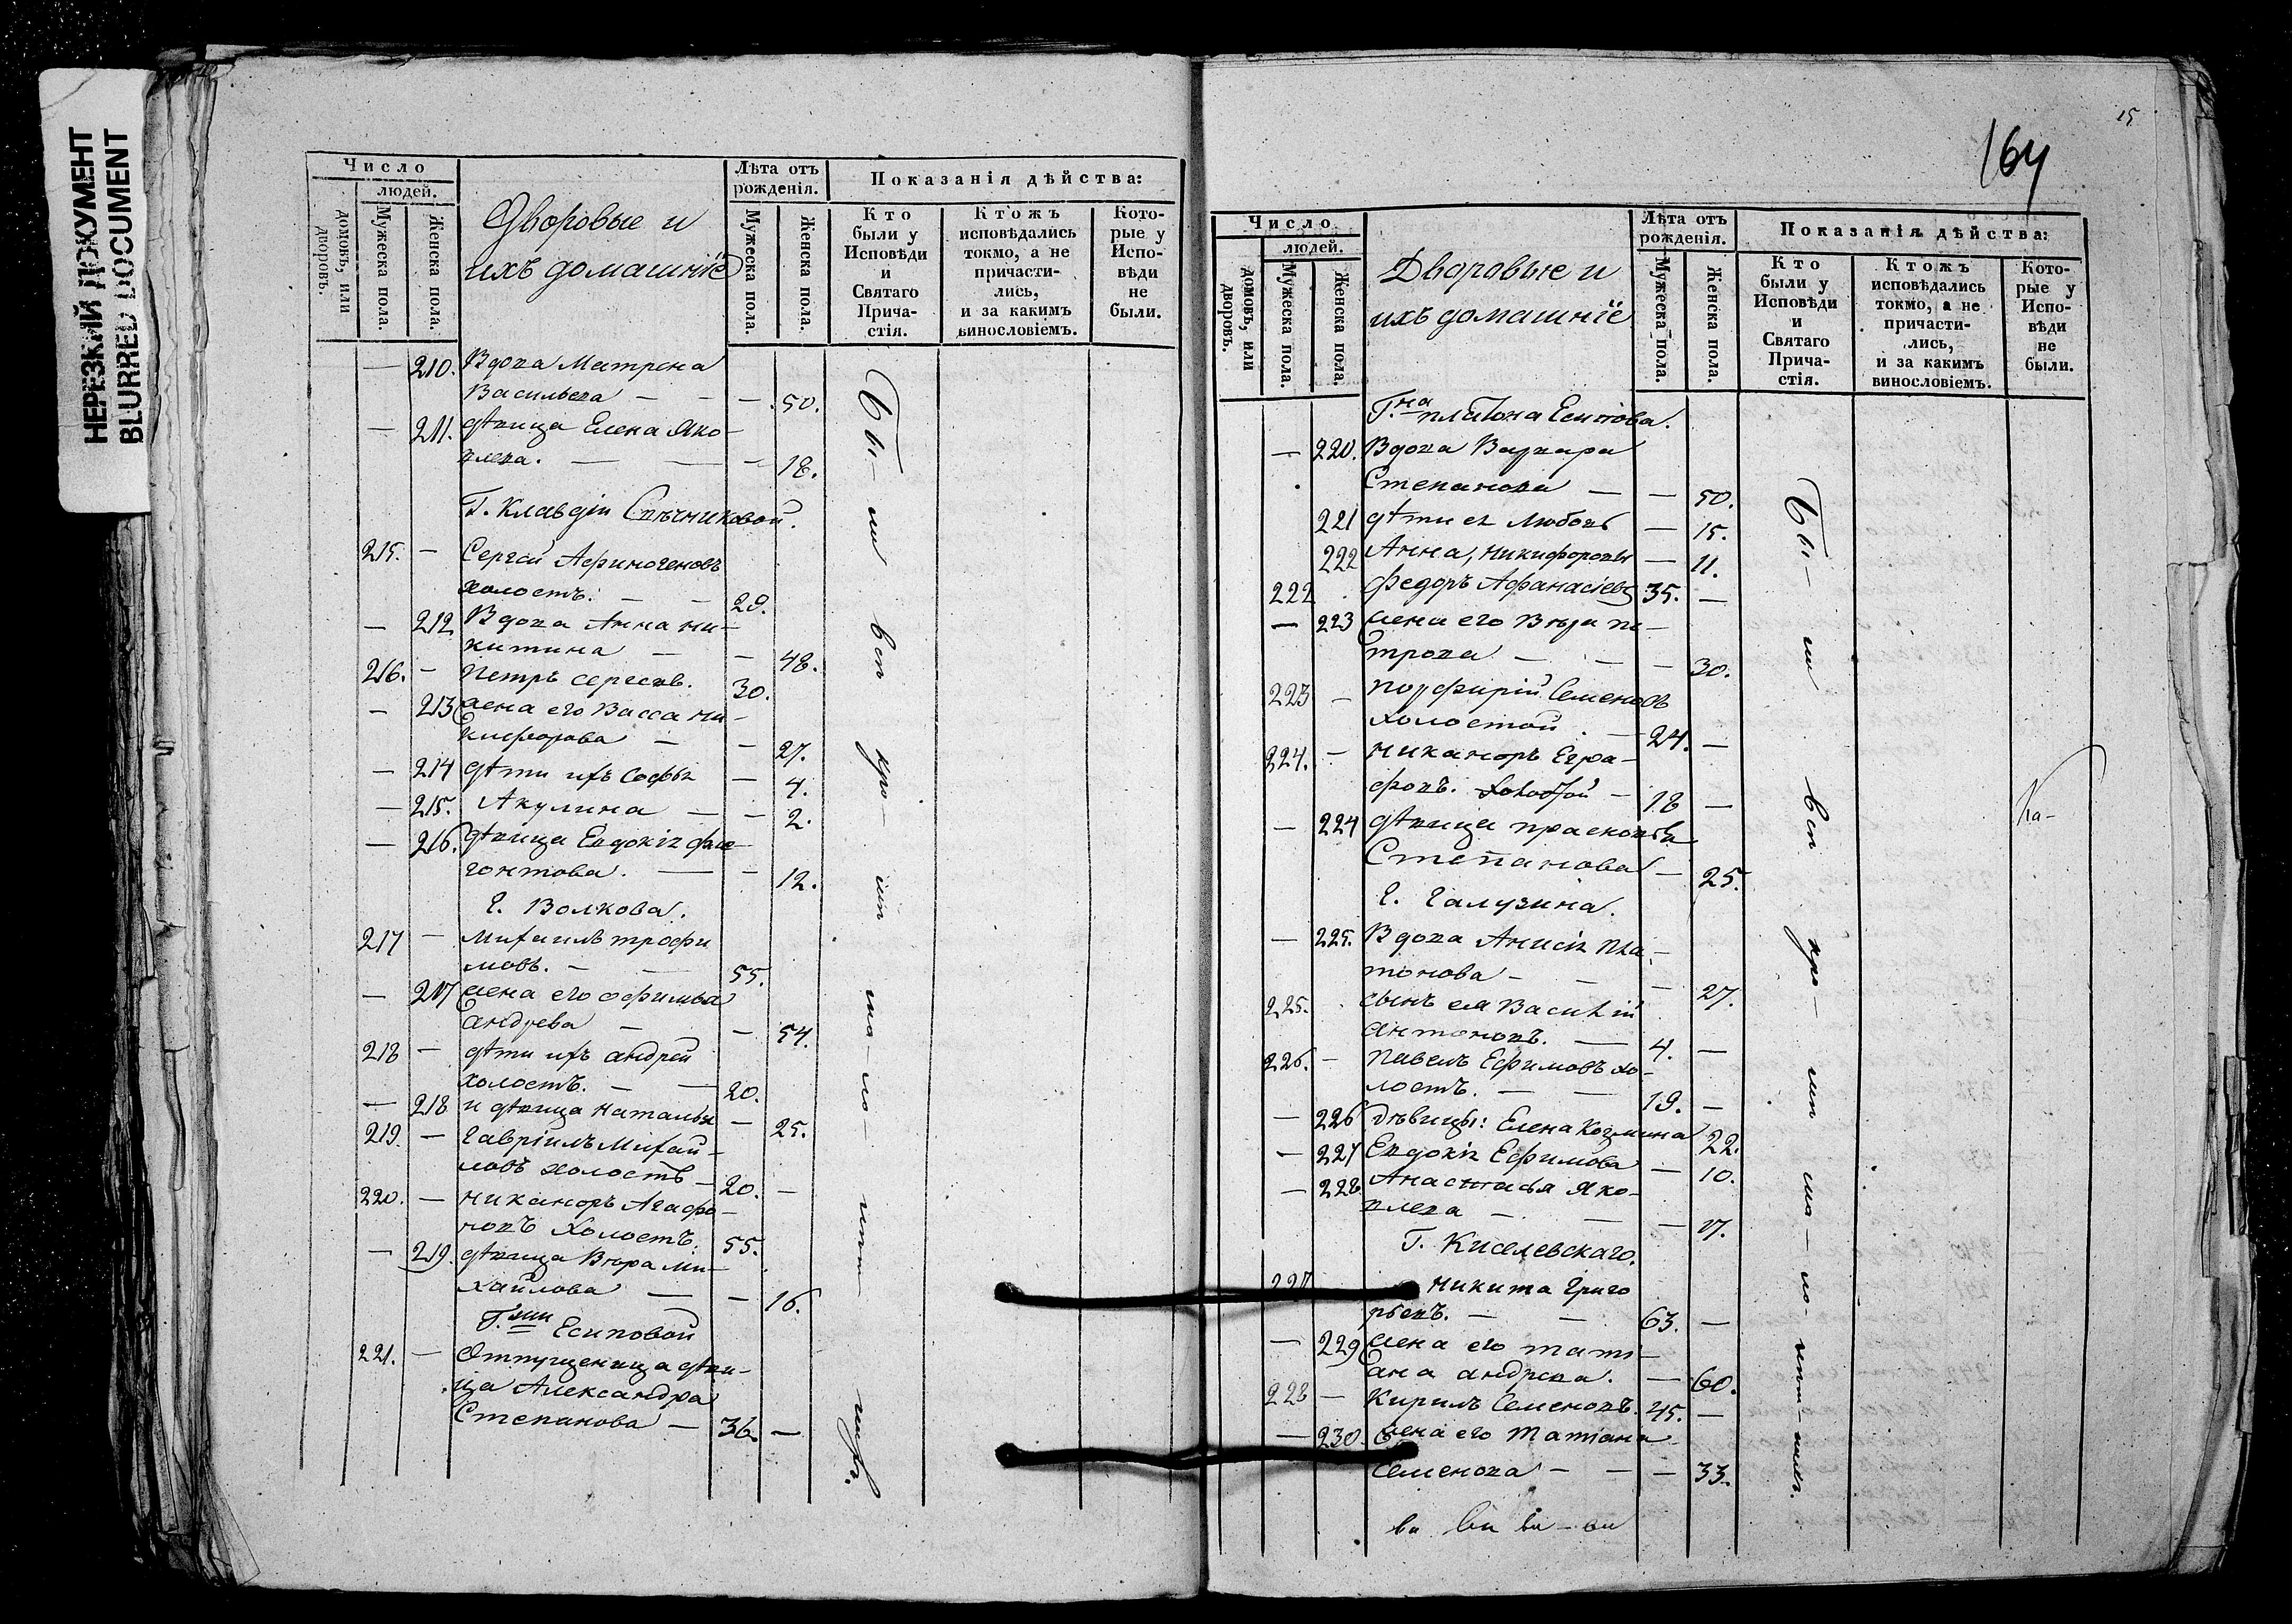 НЕРЕЗКИЙ ДОКУМЕНТ
BLURRED DOCUMENT
Число
людей.
домовъ, или дворовъ.
Мужеска пола.
Женска пола.
Дворовые и
ихъ домашніе
Лѣта отъ
рожденія.
Мужеска пола.
Женска пола.
Показанія дѣйства:
Кто
были у
Исповѣди
и
Святаго
Прича-
стія.
Ктожъ
исповѣдались
токмо, а не
причасти-
лись,
и за какимъ
винословіемъ.
Кото-
рые у
Испо-
вѣди
не
были.
— 210. Вдова Матрена
Васильева — — — 50.
— 211. дѣвица Елена Яко-
влева. — — — 18.
Г. Клавдіи Свѣчниковой.
215. — Сергѣй Афиногеновъ
холостъ. — — 29.
— 212 Вдова Анна Ни-
китина — — 48.
216. — Петръ Сергеевъ. 30.
— 213 Жена его Васса Ни-
кифорова — — 27.
— 214 дѣти ихъ Софья — 4.
— 215. Акулина — — 2.
— 216. дѣвица Евдокія
гонтова. — — 12.
Г. Волкова.
217 — Михаилъ Трофи
мовъ. — — 55.
— 217 Жена его Офимья
Андрева — — 54.
218 — дѣти ихъ Андрей
холостъ. — — 20.
— 218 и дѣвица Наталья — 25.
219. — Гавріилъ Михай-
ловъ холостъ — 20. —
220. — Никаноръ Агафо-
новъ холостъ. 55.
— 219. дѣвица Вѣра Ми-
хайлова — — 16.
Г.жи Есиповой
221. — Отпущеница дѣви-
ца Александра
Степанова — 36. —
Бы- ли всѣ
15
164
Число
людей.
домовъ, или дворовъ.
Мужеска пола.
Женска пола.
Дворовые и
ихъ домашніе
Лѣта отъ
рожденія.
Мужеска пола.
Женска пола.
Показанія дѣйства:
Кто
были у
Исповѣди
и
Святаго
Прича-
стія.
Ктожъ
исповѣдались
токмо, а не
причасти-
лись,
и за какимъ
винословіемъ.
Кото-
рые у
Испо-
вѣди
не
были.
Г.на Платона Есипова.
— 220. Вдова Варвара
Степанова — — 50.
221 дѣти ея Любовь — 15.
222 Анна, Никифоровы — 11.
222 Федоръ Афанасіевъ 35. —
— 223 Жена его Вѣра Пе-
трова — — — 30.
223 — Порфирій Семеновъ
холостой. — 24. —
224. — Никаноръ Евгра-
фовъ. холостой — 18 —
— 224 дѣвица Прасковья
Степанова — 25.
Г. Галузина.
— 225. Вдова Анисія Пла-
тонова — — — 27.
225. сынъ ея Василій
Антоновъ. — 4. —
226. — Павелъ Ефимовъ хо-
лостъ. — — 19. —
— 226 Дѣвицы: Елена Козмина 22.
— 227 Евдокія Ефимова — 10.
— 228. Анастасья Яко-
влева — — — 17.
Г. Киселевскаго.
227 Никита Григо
рьевъ. — — 63. —
— 229 Жена его Тати-
ана Андрева. — 60.
228 — Кирилъ Семеновъ. 45. —
— 230. Жена его Татіана
Семенова — — — 33.
Бы- ли всѣ